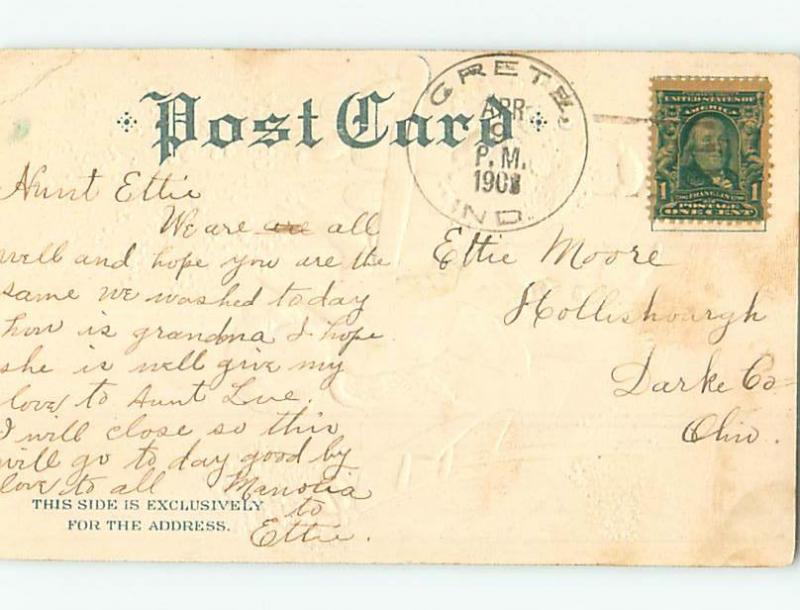 Post Card
GRETE
APR
9
P. M.
190
IND.
UNITED STATES OF
AMERICA
1 FRANKLIN 1
POSTAGE
ONE CENT
Aunt Ettie
We are are all
well and hope you are the
same we washed today
how is grandma I hope
she is well give my
love to Aunt Lue.
I will close so this
will go to day good by
love to all
to
Ettie.
Ettie Moore
Hollisbourgh
Darke Co
Ohio.
THIS SIDE IS EXCLUSIVELY
FOR THE ADDRESS.